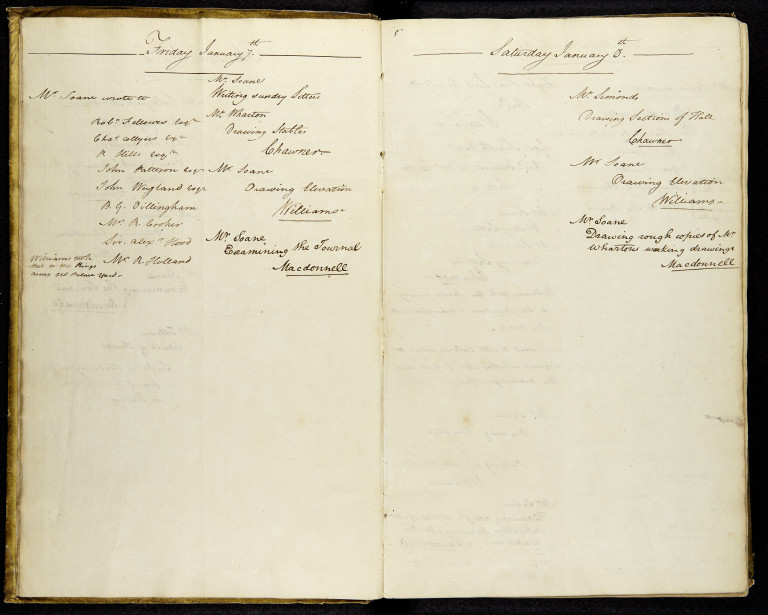 Friday January 7th
Mr. Soane wrote to
Robt. Fellowes Esqr.
Chas. Collyer Esqr.
R. Hills Esqr.
John Patteson Esqr
John Wayland Esqr
B. G. Dillingham
Mr. R. Crooker
Sir. Alexr. Hood
Mr. R. Holland
Williams took
that to the Kings
arms Old Palace Yard.
Mr. Soane
Writing sunday Letters
Mr. Wharton
Drawing Stables
Chawner
Mr. Soane
Drawing Elevation
Williams
Mr. Soane
Examining the Journal
Macdonnell
Saturday January 8th.
Mr. Simonds
Drawing Sections of Hall
Chawner
Mr. Soane
Drawing Elevation
Williams
Mr. Soane
Drawing rough copies of Mr
Whartons working drawings
Macdonnell